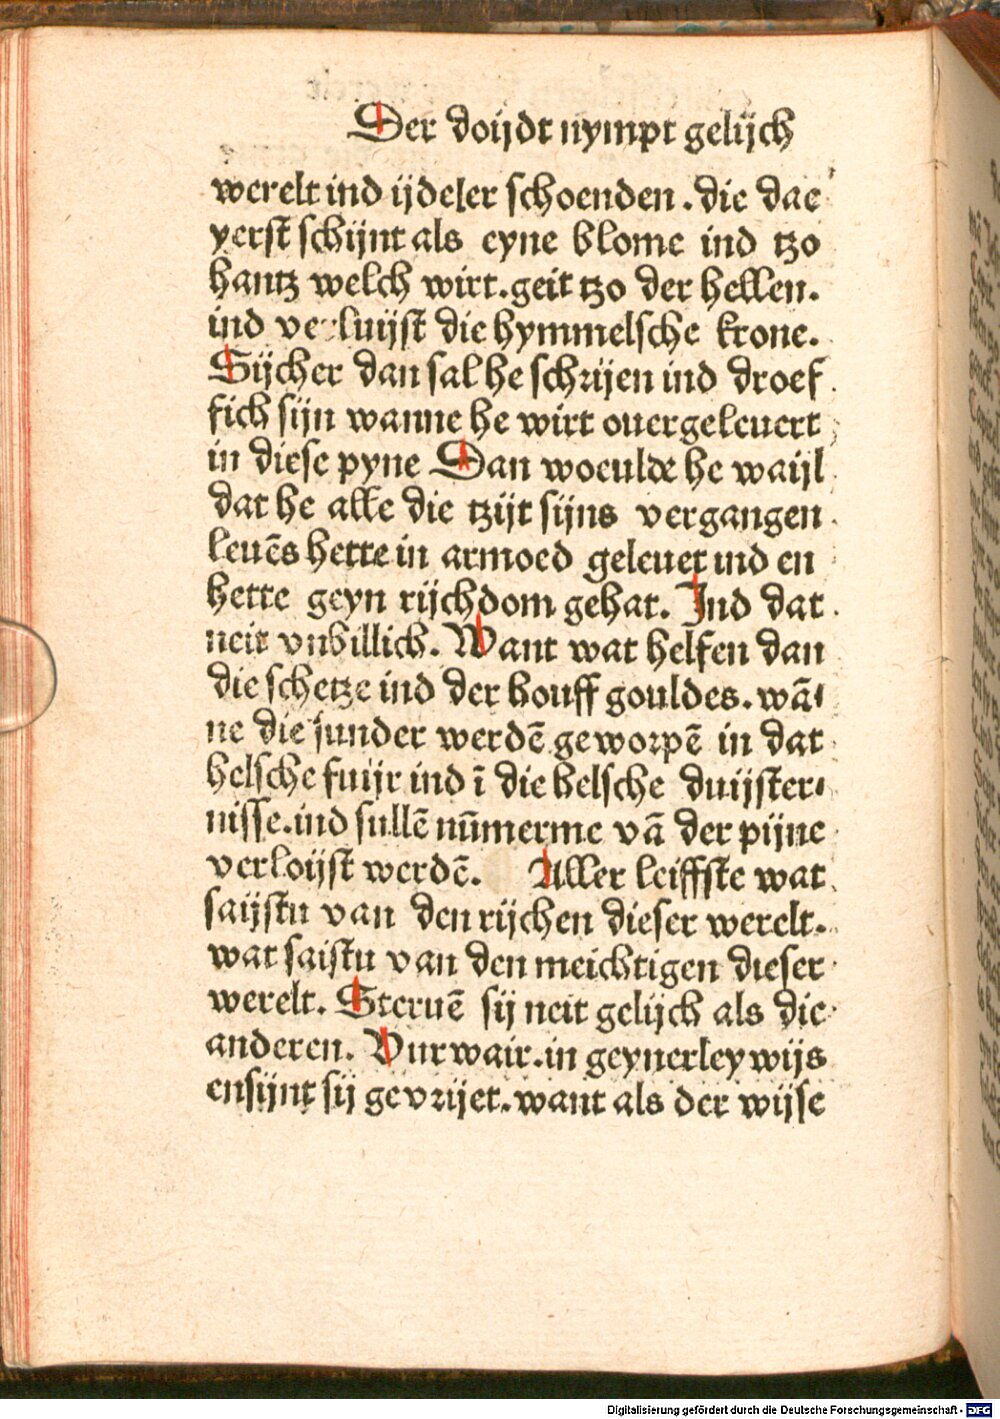 Der doijdt nympt gelijch
werelt ind ijdeler schoenden . die dae
yerst schijnt als eyne blome ind tzo
hantz welch wirt . geit tzo der hellen .
ind verluijst die hymmelsche krone .
Sijcher dan sal he schrijen ind droef
fich sijn wanne he wirt ouergeleuert
in diese pyne Dan woeulde he waijl
dat he alle die tzijt sijns vergangen
leuēs hette in armoed geleuet ind en
hette geyn rijchdom gehat . Ind dat
neit vnbillich . Want wat helfen dan
die schetze ind der houff gouldes . wā⸗
ne die sunder werdē geworpē in dat
helsche fuijr ind ī die helsche duijster⸗
nisse . ind sullē nūmerme vā der pijne
verloijst werdē . Aller leiffste wat
saijstu van den rijchen dieser werelt .
wat saistu van den meichtigen dieser
werelt . Steruē sij neit gelijch als die
anderen . Vurwair . in geynerley wijs
ensijnt sij gevrijet . want als der wijse
Digitalisierung gefördert durch die Deutsche Forschungsgemeinschaft - DFG